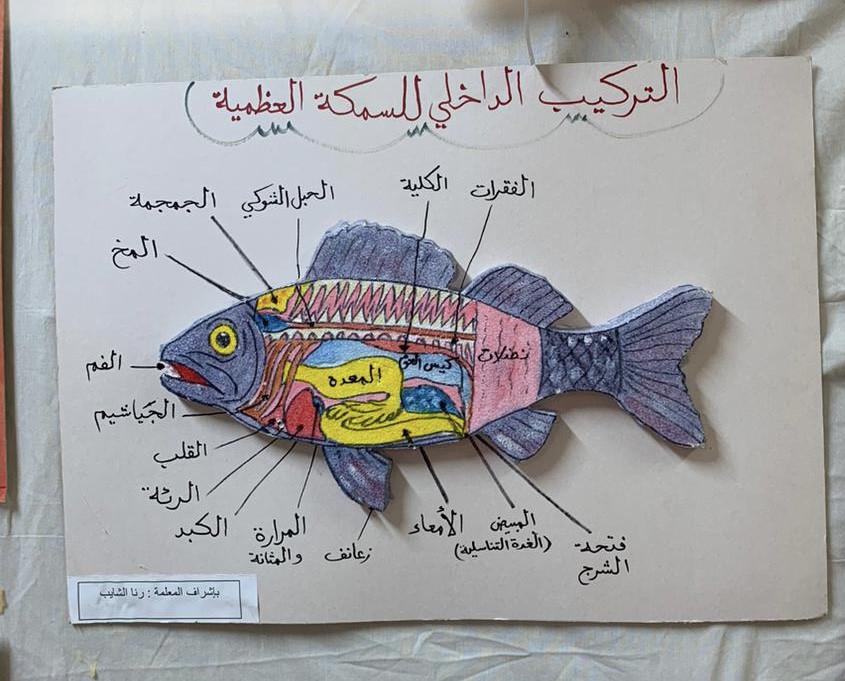 التركيب الداخلي للسمكة العظمية
الفقرات
الكلية
الحبل الشوكي
الجمجمة
المخ
الفم
الجياشيم
القلب
الرئة
الكبد
المرارة
والمثانة
زعانف
الأمعاء
المبيض
(الغدة التناسلية)
فتحة
الشرج
المعدة
عضلات
بإشراف المعلمة : رنا الشايب